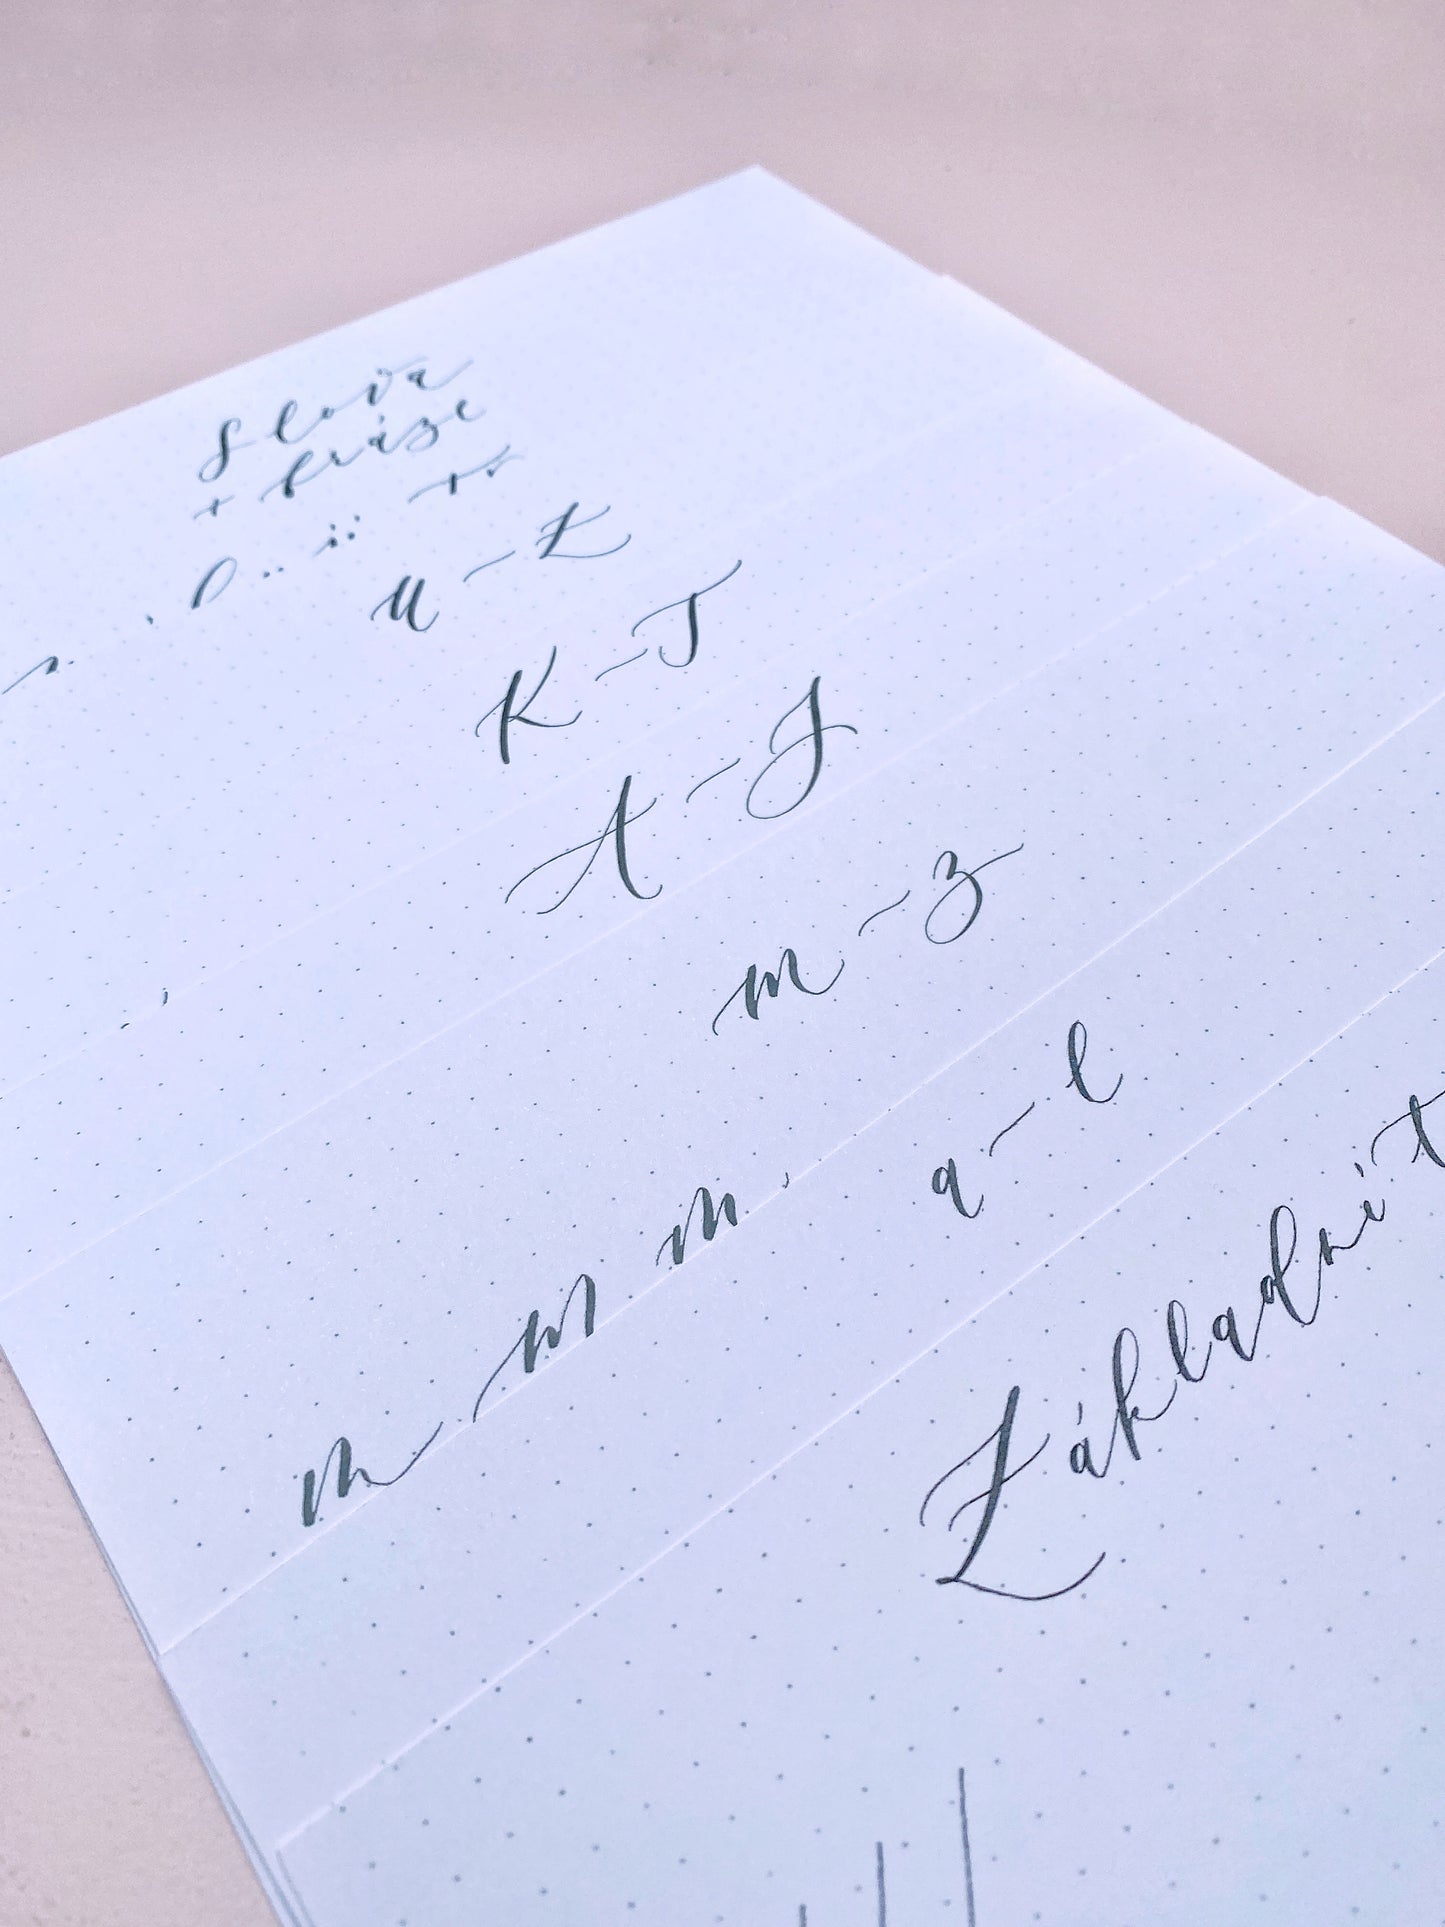 Slova
+ fráze
U - Z
K - T
A - J
m - z
a - l
m m m
Základní t